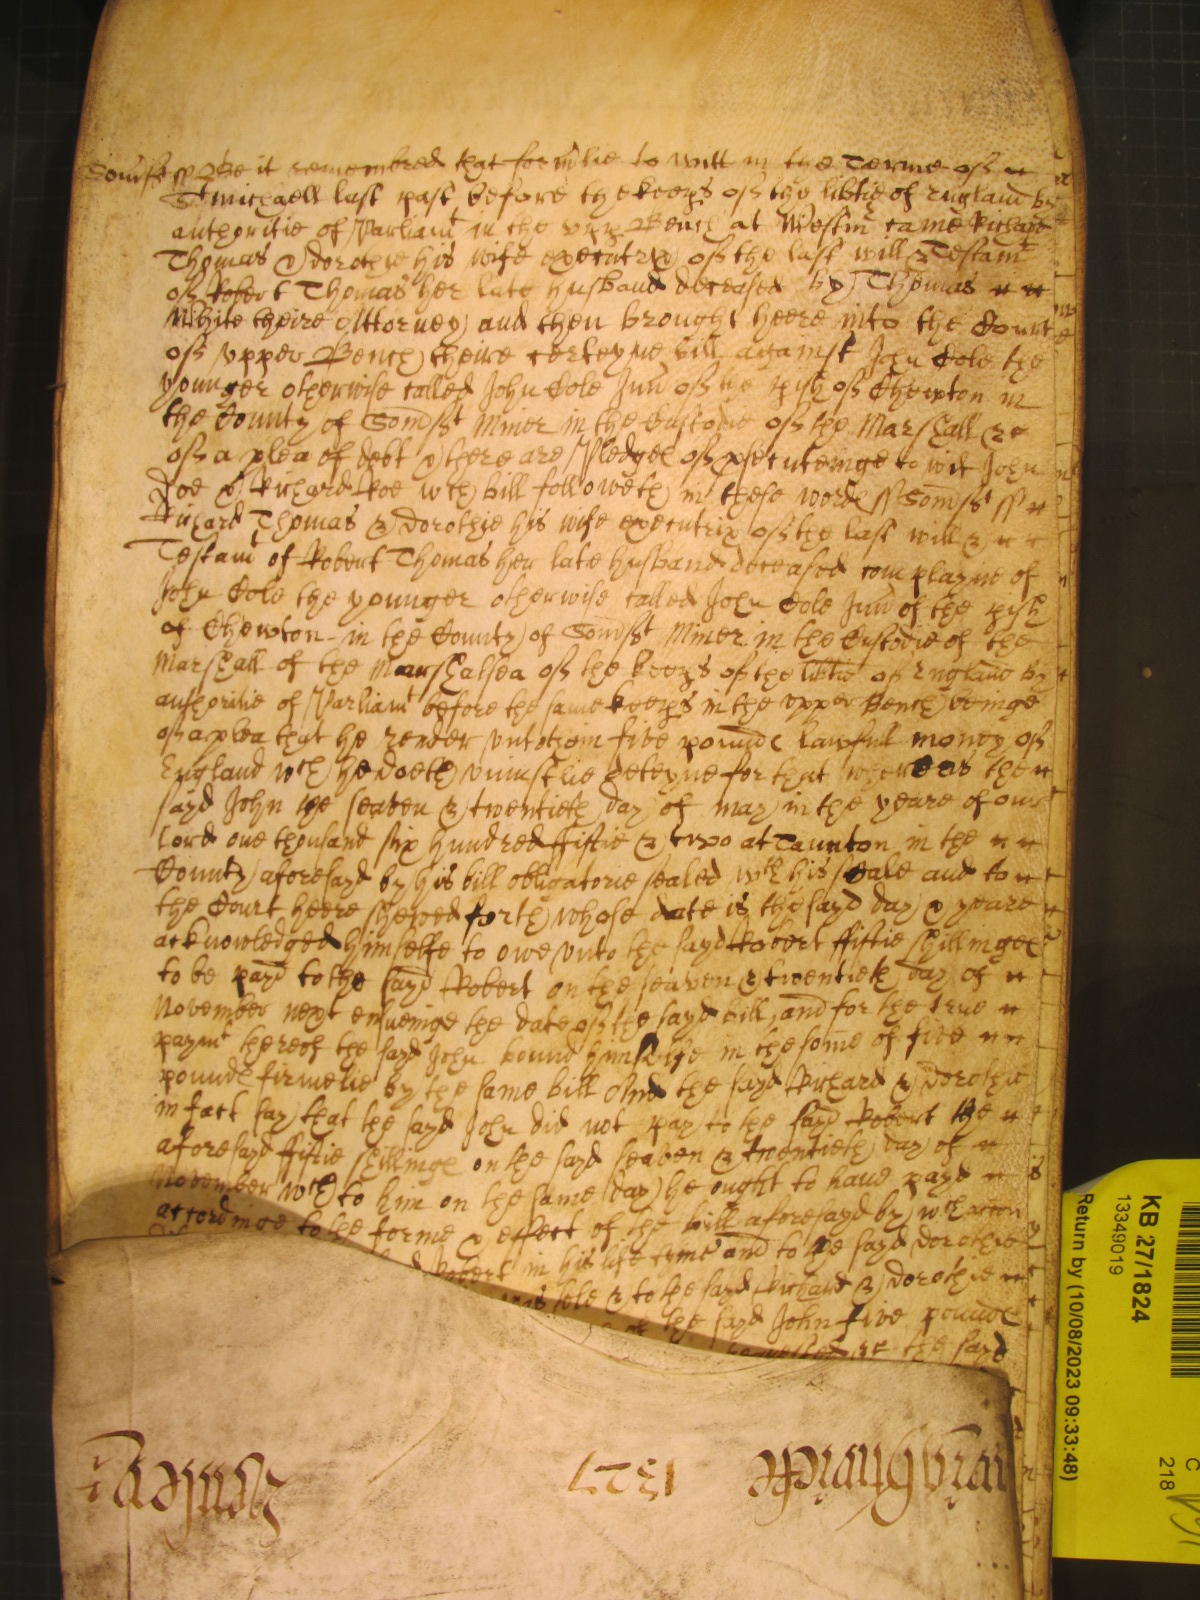 Somst ss Be it remembred that formlie to witt in the Terme of
St Michaell last past before the keeps of the libtie of England by
authoritie of Parliamt in the upp Bench at Westm came Richard
Thomas & Dorothie his wife executrix of the last will & Testamt
of Robert Thomas her late husband deceased by Thomas
White theire Attorney and then brought heere into the Court
of upper Bench theire certeyne bill against John Cole the
younger otherwise called John Cole Junr of the pish of Chewton in
the County of Somst Miner in the Custodie of the Marshall &c
of a plea of debt & there are Pledges of psecuteinge to wit John
Doe & Richard Roe wch bill followeth in these words ss Somst ss
Richard Thomas & Dorothie his wife executrix of the last will &
Testamt of Robert Thomas her late husband deceased complayne of
John Cole the younger otherwise called John Cole Junr of the pish
of Chewton in the County of Somst Miner in the Custodie of the
Marshall of the Marshalsea of the keeps of the libtie of England by
authoritie of Parliamt before the same keeps in the upper Bench beinge
of a plea that he render unto them five pounds lawful money of
England wch he doeth uniustlie deteyne for that whereas the
sayd John the seaven & twentieth day of may in the yeare of our
Lord one thousand six hundred fiftie & two at Taunton in the
County aforesayd by his bill obligatorie sealed wth his seale and to
the Court heere shewed forth whose date is the sayd day & yeare
acknowledged himselfe to owe unto the sayd Robert fiftie shillinges
to be payd to the sayd Robert on the seaven & twentieth day of
November next ensueinge the date of the sayd bill, and for the true
paymt thereof the sayd John bound himselfe in the some of five
pounds firmelie by the same bill And the sayd Richard & Dorothie
in fact say that the sayd John did not pay to the sayd Robert the
aforesayd fiftie shillings on the sayd seaven & twentieth day of
November wch to him on the same day he ought to have payd
accordinge to the forme & effect of the bill aforesayd by wch accon
Robert in his life tyme and to the sayd Dorothie
sole & to the sayd Richard & Dorothie
of the sayd John five pounds
the sayd
1327
KB 27/1824
13349019
Return by (10/08/2023 09:33:48)
C
218